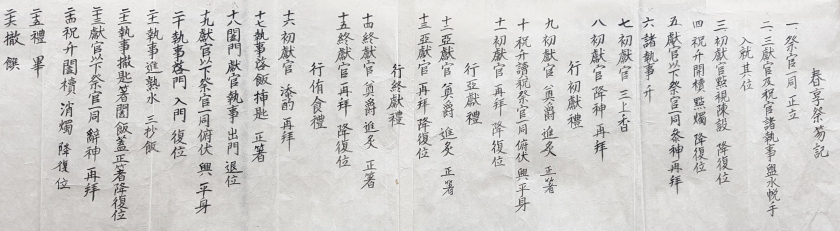 春享祭笏記
一 祭官一同 正立
二 三獻官及祝官諸執事盥水帨手
入就其位
三 初獻官點視陳設 降復位
四 祝升開櫝點燭 降復位
五 獻官以下祭官一同參神再拜
六 諸執事 升
七 初獻官 三上香
八 初獻官 降神 再拜
行初獻禮
九 初獻官 奠爵 進炙 正箸
十 祝升讀祝祭官一同俯伏興平身
十一 初獻官 再拜 降復位
行亞獻禮
十二 亞獻官 奠爵 進炙 正箸
十三 亞獻官 再拜 降復位
行終獻禮
十四 終獻官 奠爵 進炙 正箸
十五 終獻官 再拜 降復位
行侑食禮
十六 初獻官 添酌 再拜
十七 執事啓飯揷匙 正箸
十八 闔門 獻官執事 出門 退位
十九 獻官以下祭官一同俯伏 興 平身
二十 執事啓門 入門 復位
二十一 執事進熟水 三抄飯
二十二 執事撤匙箸闔飯蓋正箸降復位
二十三 獻官以下祭官一同 辭神 再拜
二十四 祝升闔櫝 消燭 降復位
二十五 禮畢
二十六 撤餕